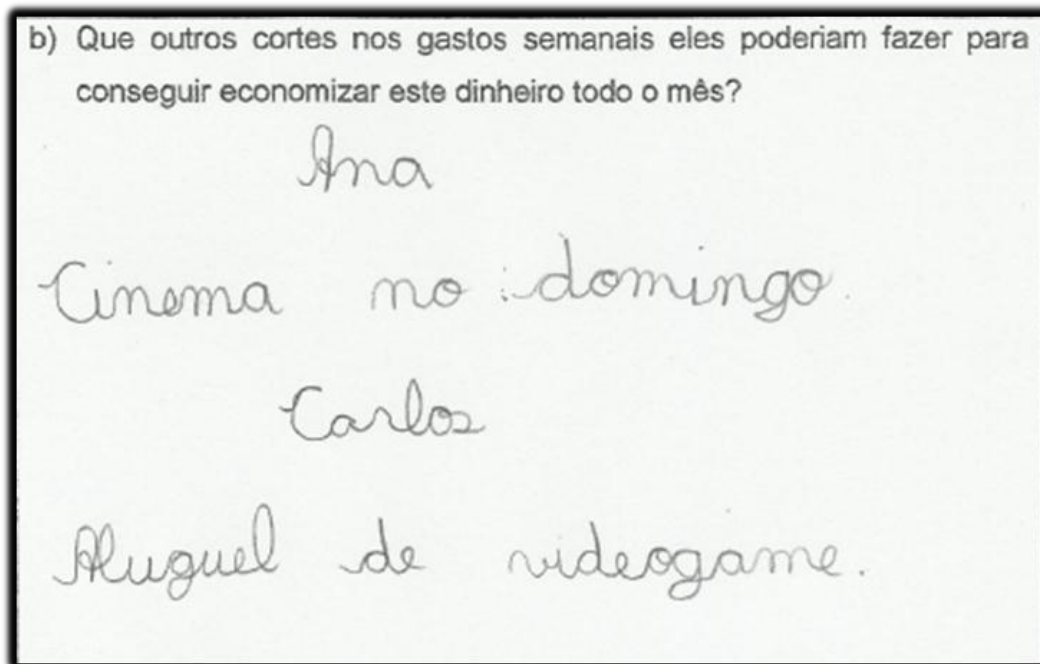 b) Que outros cortes nos gastos semanais eles poderiam fazer para
conseguir economizar este dinheiro todo o mês?
Ana
Cinema no domingo.
Carlos
Aluguel de videogame.